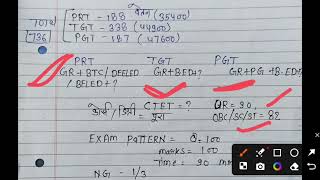 वेतन
PRT - 188 (35400)
TGT - 338 (44900)
PGT - 187 (47600)
736
PRT TGT PGT
GR + BTC/DELED GR+BED+? GR+PG+B.ED+?
/BELED+?
कोर्स/डिग्री CTET = ? UR = 90,
पूरा OBC/SC/ST = 82
EXAM PATTERN = Q = 100
marks = 100
Time = 90
NG - 1/3